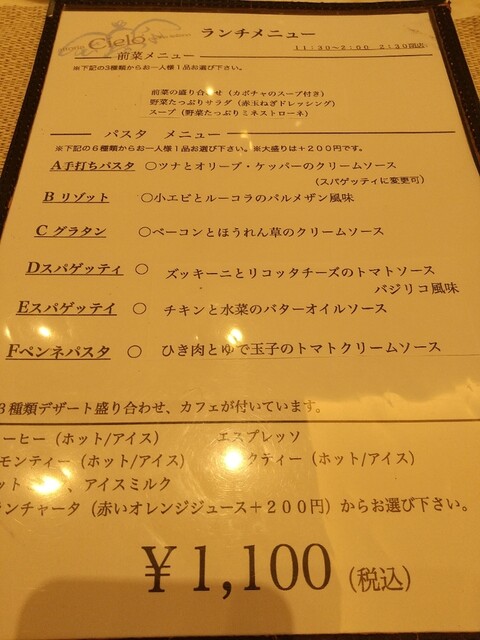 Cielo
ランチメニュー
11:30~2:00 2:30閉店
前菜メニュー
※下記の3種類からお一人様1品お選び下さい。
前菜の盛り合せ(カボチャのスープ付き)
野菜たっぷりサラダ(赤玉ねぎドレッシング)
スープ(野菜たっぷりミネストローネ)
パスタ メニュー
※下記の6種類からお一人様1品お選び下さい。※大盛りは+200円です。
A手打ちパスタ ○ツナとオリーブ・ケッパーのクリームソース
(スパゲッティに変更可)
Bリゾット ○小エビとルーコラのパルメザン風味
Cグラタン ○ベーコンとほうれん草のクリームソース
Dスパゲッティ ○ ズッキーニとリコッタチーズのトマトソース
バジリコ風味
Eスパゲッティ ○ チキンと水菜のバターオイルソース
Fペンネパスタ ○ ひき肉とゆで玉子のトマトクリームソース
3種類デザート盛り合わせ、カフェが付いています。
ーヒー(ホット/アイス) エスプレッソ
モンティー(ホット/アイス) クティー(ホット/アイス)
ット 、アイスミルク
ランチャータ(赤いオレンジジュース+200円)からお選び下さい。
¥1,100(税込)